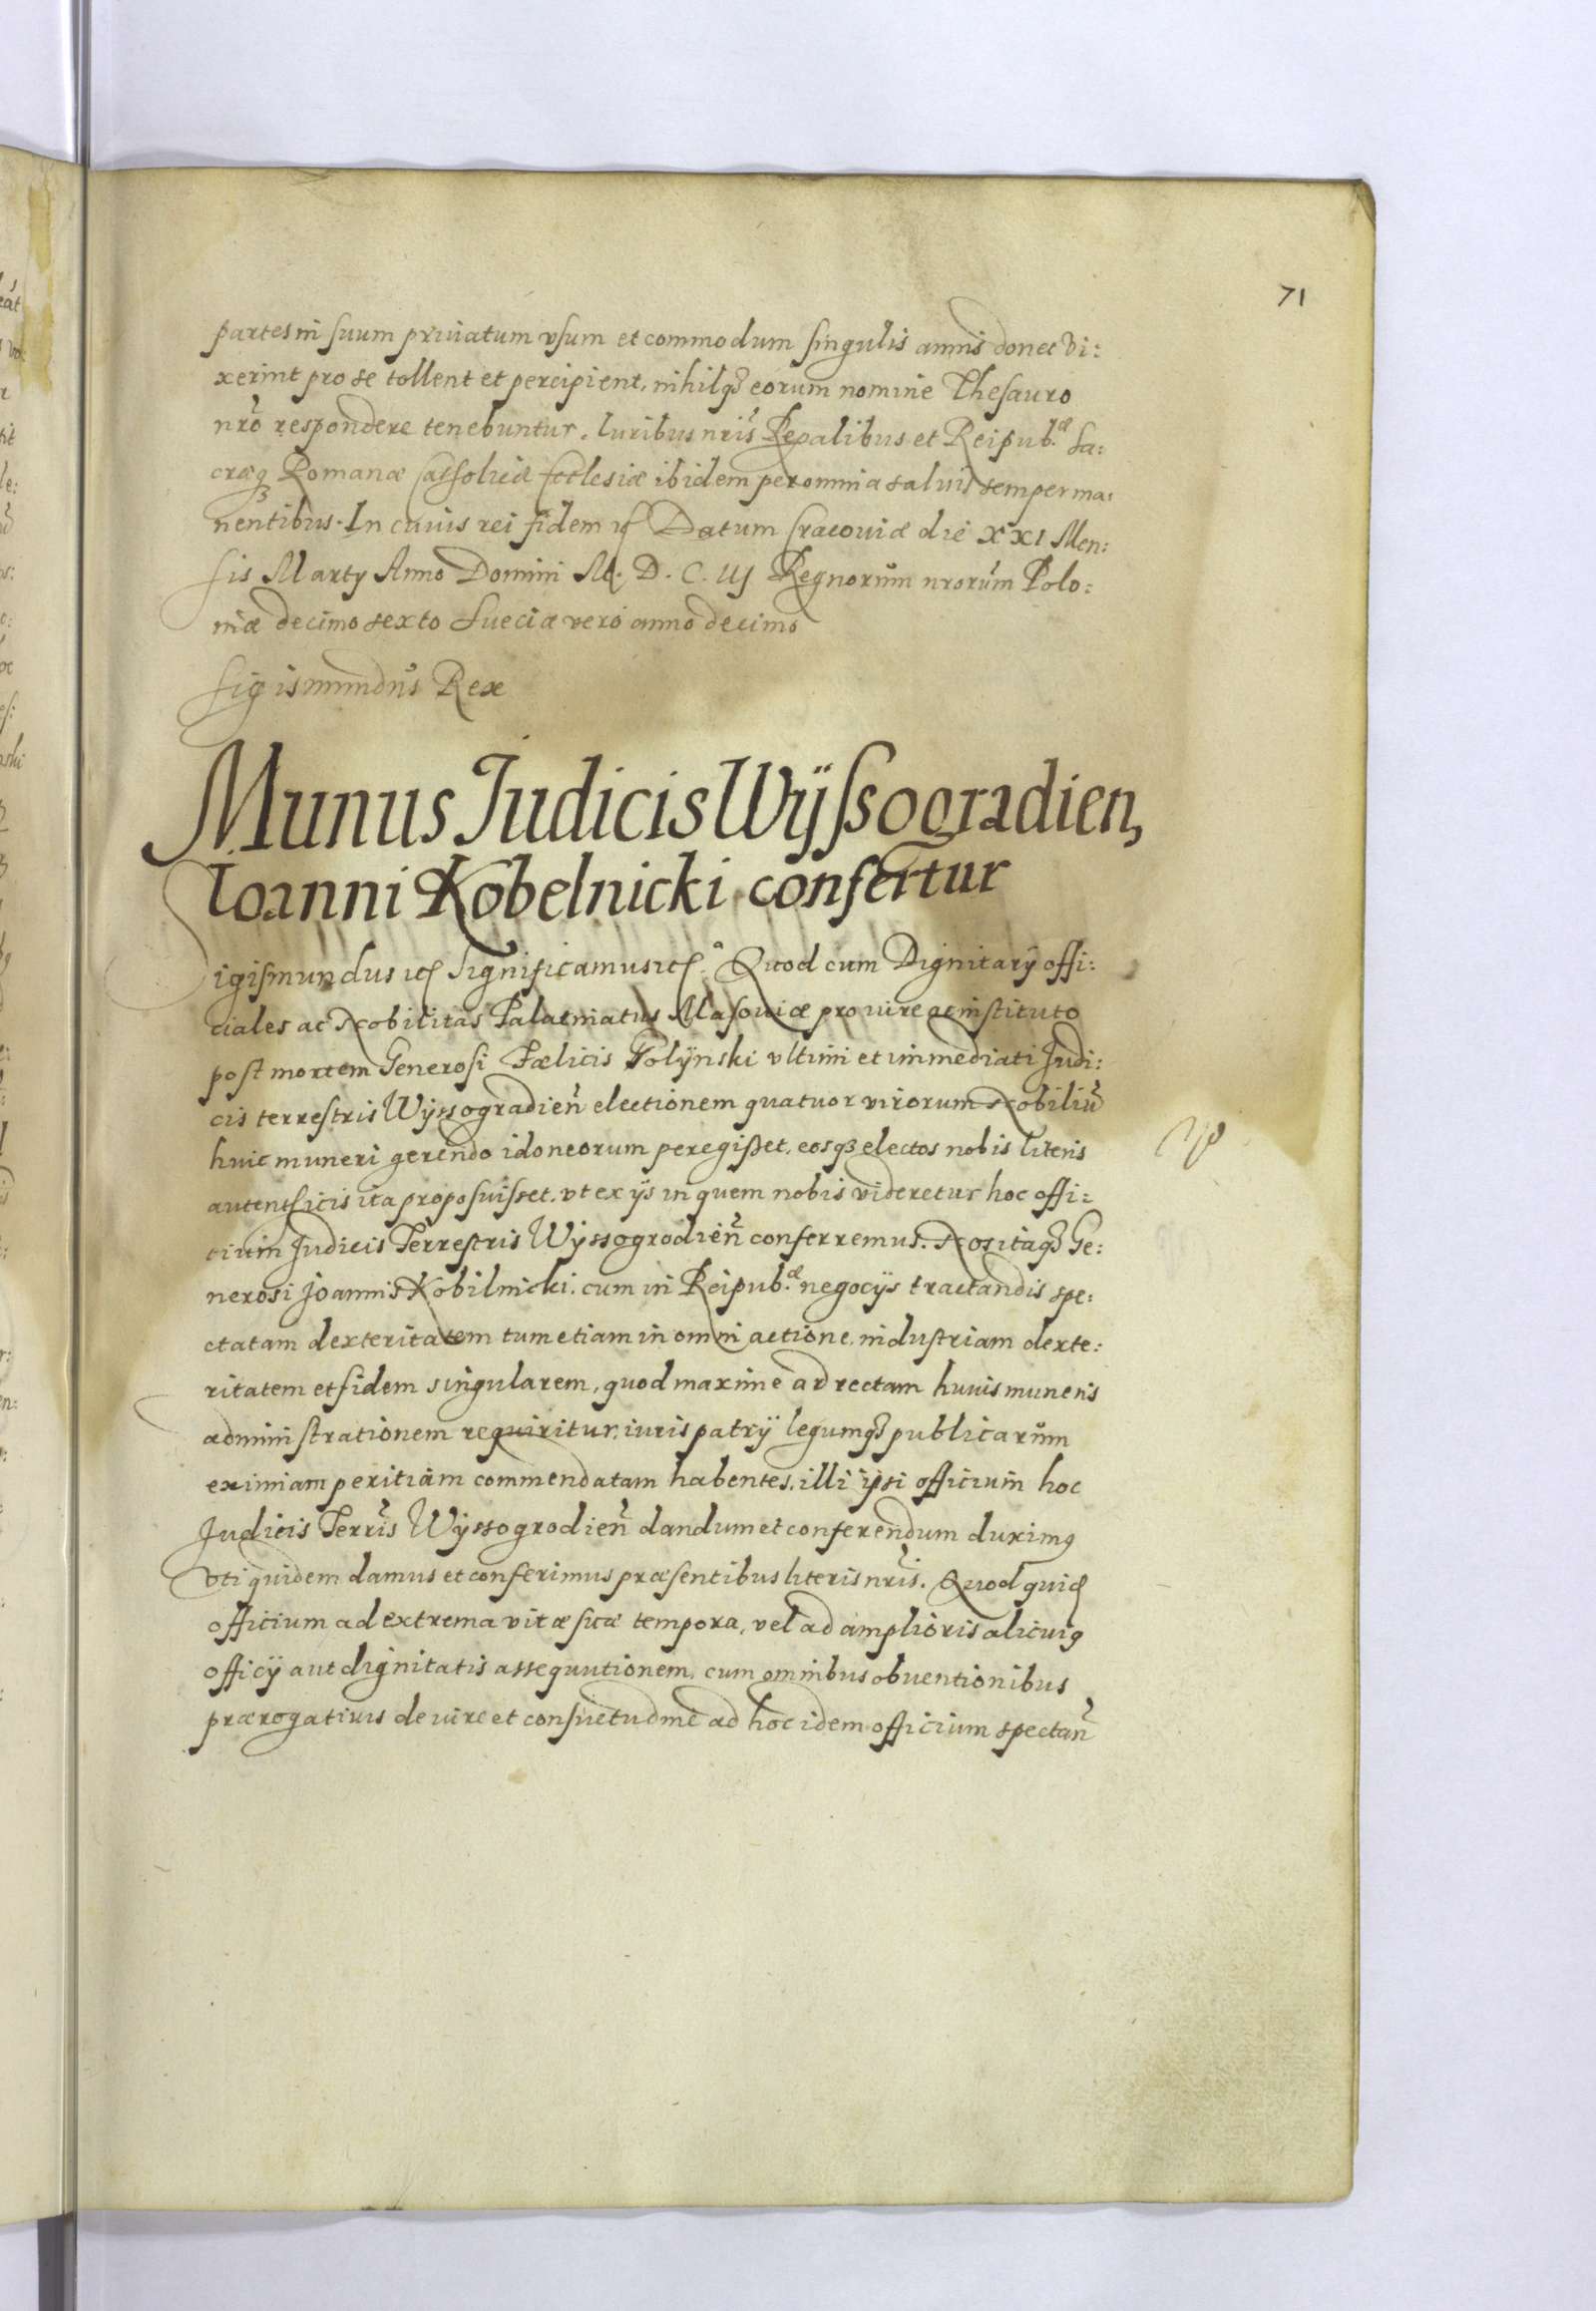 71
partes in suum priuatum vsum et commodum singulis annis donec vi:
xerint pro se tollent et percipient, nihilq3 eorum nomine Thesauro
nr̃o respondere tenebuntur. Iuribus nr̃is Regalibus et Reipub.æ Sa:
cræq3 Romanæ Catholicæ Ecclesiæ ibidem per omnia saluis semper ma:
nentibus. In cuius rei fidem etc Datum Cracouiæ die XXI Men:
sis Marty Anno Domini M. D. C. IIJ Regnorum nrorum Polo:
niæ decimo sexto Sueciæ vero anno decimo
Sigismundus Rex
Munus Iudicis Wÿssogradien,
Ioanni Kobelnicki confertur
Sigismundus etc Significamus etc. Quod cum Dignitarÿ offi:
ciales ac Nobilitas Palatinatus Masouiæ pro iure ac instituto
post mortem Generosi Fælicis Golÿnski vltimi et immediati Judi:
cis terrestris Wÿssogradien̄ electionem quatuor virorum Nobiliū
huic muneri gerendo idoneorum peregisset, eosq3 electos nobis literis
autenthicis ita proposuisset. vt ex ijs in quem nobis videretur hoc offi:
cium Judicis Terrestris Wÿssogrodien̄ conferremus. Nos itaq3 Ge:
nerosi Joannis Kobilnicki. cum in Reipub.æ negocijs tractandis spe:
ctatam dexteritatem tum etiam in omni actione. industriam dexte:
ritatem et fidem singularem, quod maxime ad rectam huius muneris
administrationem requiritur, iuris patrÿ legumq3 publicarum
eximiam peritiam commendatam habentes, illi ipsi officium hoc
Judicis Terr̃is Wÿssogrodien̄ dandum et conferendum duximq
vti quidem damus et conferimus præsentibus literis nr̃is. Quod quid
officium ad extrema vitæ suæ tempora, vel ad amplioris alicuiq
officÿ aut dignitatis assequutionem, cum omnibus obuentionibus
prærogatiuis de iure et consuetudine ad hoc idem officium spectan̄